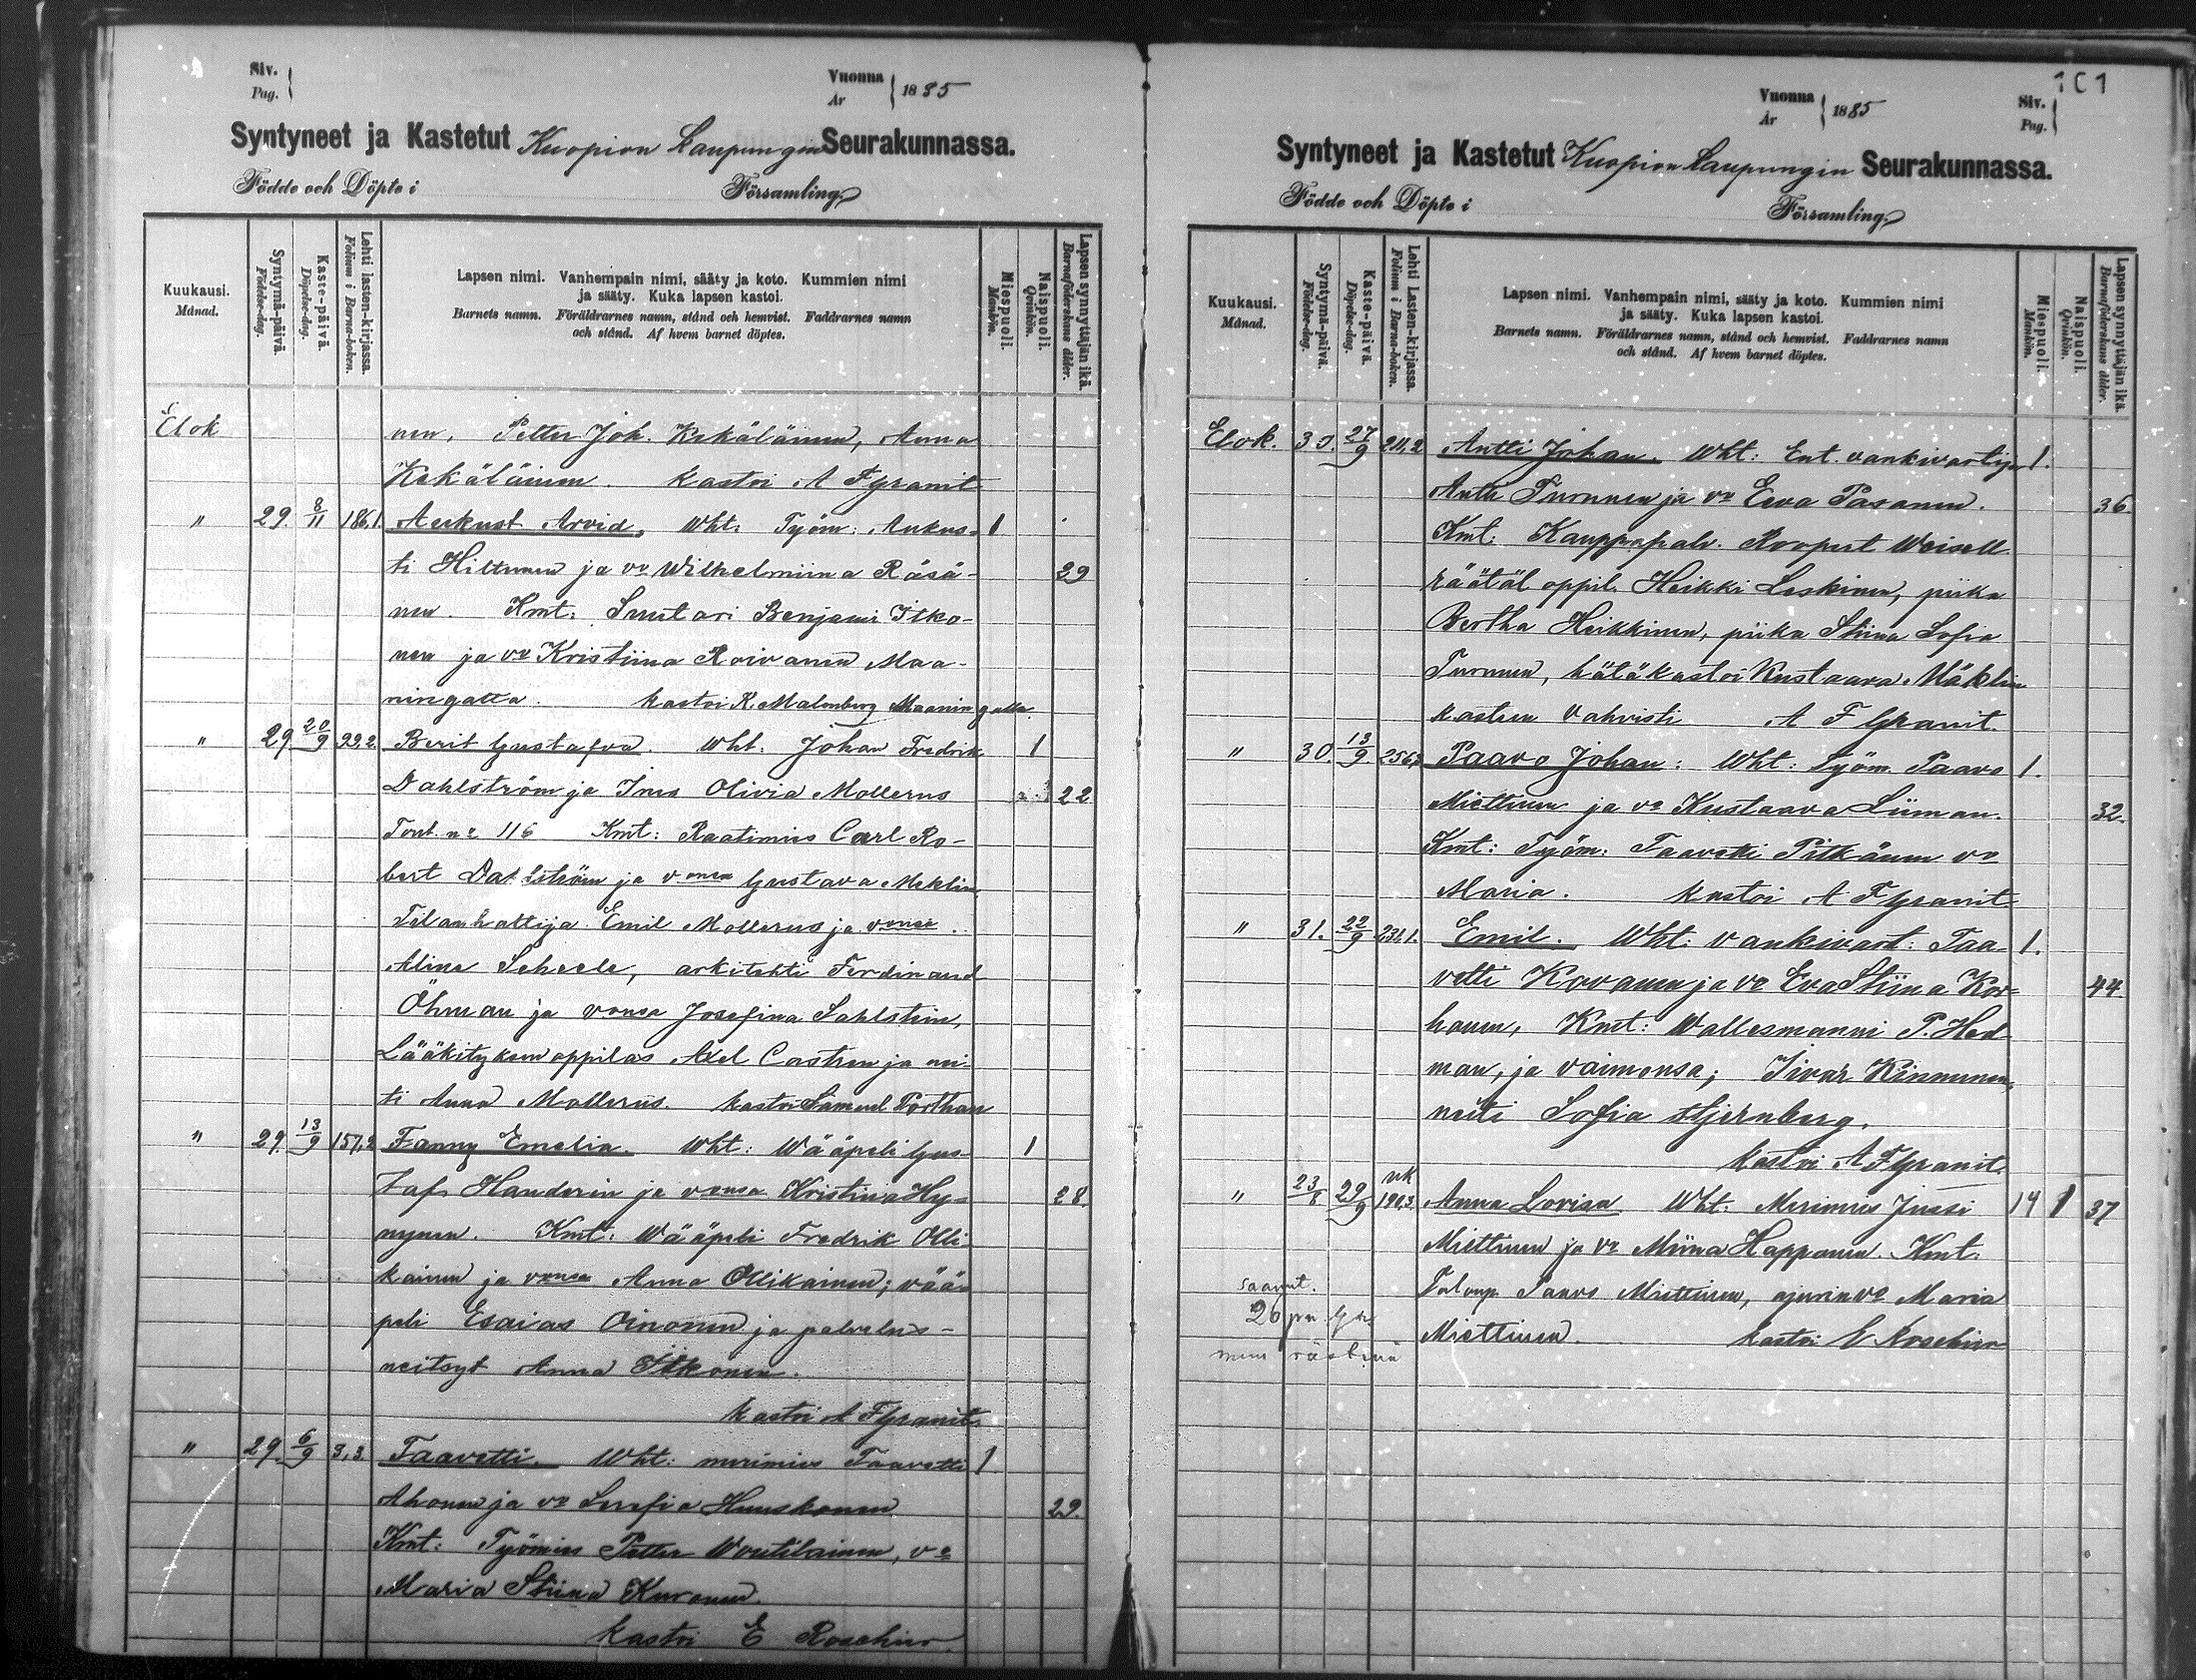 Siv.
Pag.
Vuonna
År
1885
Syntyneet ja Kastetut Kuopion Kaupungin Seurakunnassa.
Födde och Döpte i Församling.
Kuukausi.
Månad.
Syntymä-päivä.
Födelse-dag.
Kaste-päivä.
Döpelse-dag.
Lehti lasten-kirjassa.
Folium i Barna-boken.
Lapsen nimi. Vanhempain nimi, sääty ja koto. Kummien nimi
ja sääty. Kuka lapsen kastoi.
Barnets namn. Föräldrarnes namn, stånd och hemvist. Faddrarnes namn
och stånd. Af hvem barnet döptes.
Miespuoli.
Mankön.
Naispuoli.
Qvinkön.
Lapsen synnyttäjän ikä.
Barnaföderskans ålder.
Elok nen, Petter Joh. Kekäläinen, Anna
Kekäläinen. Kastoi A F Granit
" 29 8/11 186,1. Aukust Arvid. Wht: Työm: Aukus- 1
ti Hiltunen ja vo Wilhelmiina Räsä- 29
nen. Kmt: Suutari Benjami Itko-
nen ja vo Kristiina Roivanen Maa-
ningatta. kastoi R. Malmberg Maaningalla.
" 29 20/9 99,2. Berit Gustafva. Wht. Johan Fredrik 1
Dahlström ja Ines Olivia Mollerus 22
Tont. no 116 Kmt: Raatimies Carl Ro-
bert Dahlström ja vonsa Gustava Meklin,
Tilanhaltija Emil Mollerus ja vonsa
Alina Scheele, arkitehti Ferdinand
Öhman ja vonsa Josefina Sahlstein,
Lääkityksen oppilas Axel Castren ja nei-
ti Anna Mollerus. kastoi Samuel Porthan
" 29. 13/9 157,2 Fanny Emelia. Wht: Wääpeli Gus- 1
taf Handerin ja vonsa Kristina Hy- 28.
nynen. Kmt: Wääpeli Fredrik Olli-
kainen ja vonsa Anna Ollikainen; vää-
peli Esaias Oinonen ja palvelus-
neitsyt Anna Itkonen.
kastoi A F Granit.
" 29. 6/9 3,3. Taavetti. Wht: merimies Taavetti 1
Ahonen ja vo Serafia Huuskonen 29.
Kmt: Työmies Petter Woutilainen, vo
Maria Stiina Kuronen.
kastoi E Roschier.
101
Vuonna
År
1885
Siv.
Pag.
Syntyneet ja Kastetut Kuopion Kaupungin Seurakunnassa.
Födde och Döpte i Församling.
Kuukausi.
Månad.
Syntymä-päivä.
Födelse-dag.
Kaste-päivä.
Döpelse-dag.
Lehti Lasten-kirjassa.
Folium i Barna-boken.
Lapsen nimi. Vanhempain nimi, sääty ja koto. Kummien nimi
ja sääty. Kuka lapsen kastoi.
Barnets namn. Föräldrarnes namn, stånd och hemvist. Faddrarnes namn
och stånd. Af hvem barnet döptes.
Miespuoli.
Mankön.
Naispuoli.
Qvinkön.
Lapsen synnyttäjän ikä.
Barnaföderskans ålder.
Elok. 30. 27/9 211,2 Antti Johan. Wht: Ent. vankivartija 1.
Antti Turunen ja vo Eeva Pasanen. 36.
Kmt: Kauppapalv. Roopert Weisell
räätäl oppil. Heikki Leskinen, piika
Bertha Heikkinen, piika Stiina Sofia
Turunen, hätäkastoi Kustaava Mäklin
kasteen vahvisti A F Granit.
" 30. 13/9. 256,3 Paavo Johan: Wht: Työm. Paavo 1.
Miettinen ja vo Kustaava Liiman. 32.
Kmt: Työm: Taavetti Pitkänen vo
Maria. kastoi A F Granit.
" 31. 22/9 231,1. Emil. Wht: vankivart: Taa- 1.
vetti Kovanen ja vo Eva Stiina Kor- 44.
honen, Kmt: Wallesmanni P. Hed-
man, ja vaimonsa; Iivar Kinnunen,
neiti Sofia Stjernberg.
kastoi A F Granit.
" 23/8 29/9 rk 190,3 Anna Lovisa Wht: Merimies Jussi 14 1 37
Miettinen ja vo Miina Happonen. Kmt:
Taloup. Paavo Miettinen, ajurin vo Maria
Miettinen. kastoi E Roschier
saanut.
26 pn